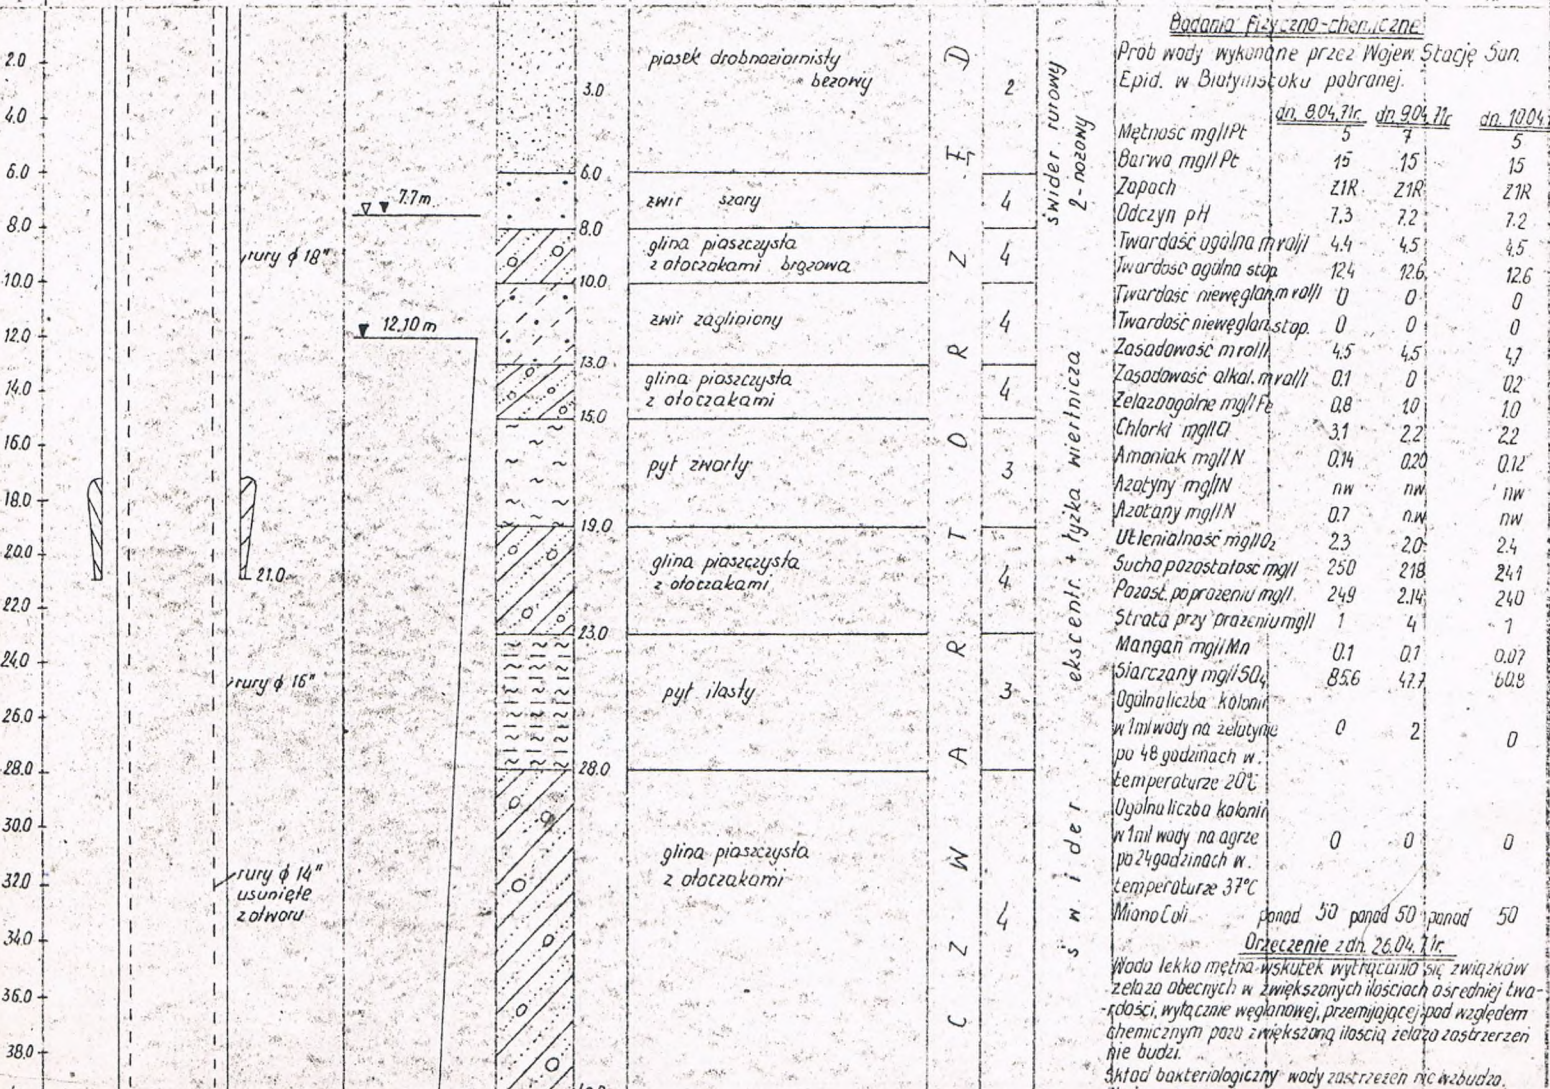 2.0
4.0
6.0
8.0
10.0
12.0
14.0
16.0
18.0
20.0
22.0
24.0
26.0
28.0
30.0
32.0
34.0
36.0
38.0
rury ϕ 18"
21.0
rury ϕ 16"
rury ϕ 14"
usunięte
z otworu
7.7 m
12.10 m
3.0
6.0
8.0
10.0
13.0
15.0
19.0
23.0
28.0
piasek drobnoziarnisty
beżowy
żwir szary
glina piaszczysta
z otoczakami brązowa
żwir zagliniony
glina piaszczysta
z otoczakami
pył zwarty
glina piaszczysta
z otoczakami
pył ilasty
glina piaszczysta
z otoczakami
CZWARTORZĘD
2
4
4
4
4
3
4
3
4
świder rurowy
2-nożowy
świder ekscentr. + łyżka wiertnicza
Badania fizyczno-chemiczne
Prób wody wykonane przez Wojew. Stację San.
Epid. w Białymstoku pobranej.
dn. 8.04.71r. dn. 9.04.71r dn. 10.04.
Mętność mg/l Pt 5 7 5
Barwa mg/l Pt 15 15 15
Zapach Z1R Z1R Z1R
Odczyn pH 7,3 7.2 7.2
Twardość ogólna mval/l 4.4 4,5 4,5
Twardość ogólna stop. 12.4 12.6 12.6
Twardość niewęglan. mval/l 0 0 0
Twardość niewęglan. stop. 0 0 0
Zasadowość mval/l 4.5 4,5 4,7
Zasadowość alkal. mval/l 0.1 0 0.2
Żelazo ogólne mg/l Fe 0.8 1.0 1.0
Chlorki mg/l Cl 3.1 2.2 2.2
Amoniak mg/l N 0.14 0.20 0.12
Azotyny mg/l N nw nw nw
Azotany mg/l N 0.7 n.w nw
Utlenialność mg/l O₂ 2.3 2.0 2.4
Sucha pozostałość mg/l 250 218 241
Pozost. po prażeniu mg/l. 249 2.14 240
Strata przy prażeniu mg/l 1 4 1
Mangan mg/l Mn 0.1 0.1 0.07
Siarczany mg/l SO₄ 85.6 47.7 60.8
Ogólna liczba kolonii
w 1ml wody na żelatynie 0 2 0
po 48 godzinach w.
temperaturze 20°C
Ogólna liczba kolonii
w 1ml wody na agrze 0 0 0
po 24 godzinach w.
temperaturze 37°C
Miano Coli ponad 50 ponad 50 ponad 50
Orzeczenie z dn. 26.04.71r.
Woda lekko mętna wskutek wytrącania się związków
żelaza obecnych w zwiększonych ilościach o średniej twa-
-rdości, wyłącznie węglanowej, przemijającej pod względem
chemicznym poza zwiększoną ilością żelaza zastrzerzeń
nie budzi.
Skład bakteriologiczny wody zastrzeżeń nie wzbudza.